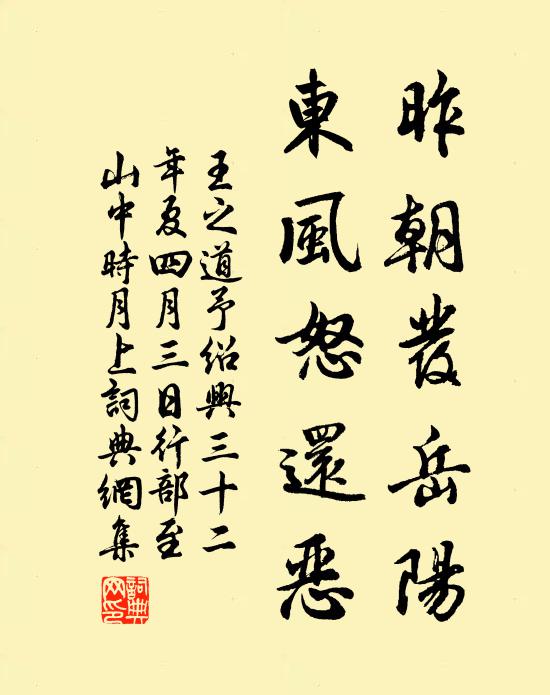 昨朝發岳陽
東風怒還惡
王之道予紹興三十二
年夏四月三日行部至
山中時月上詞典網集
詞典网印